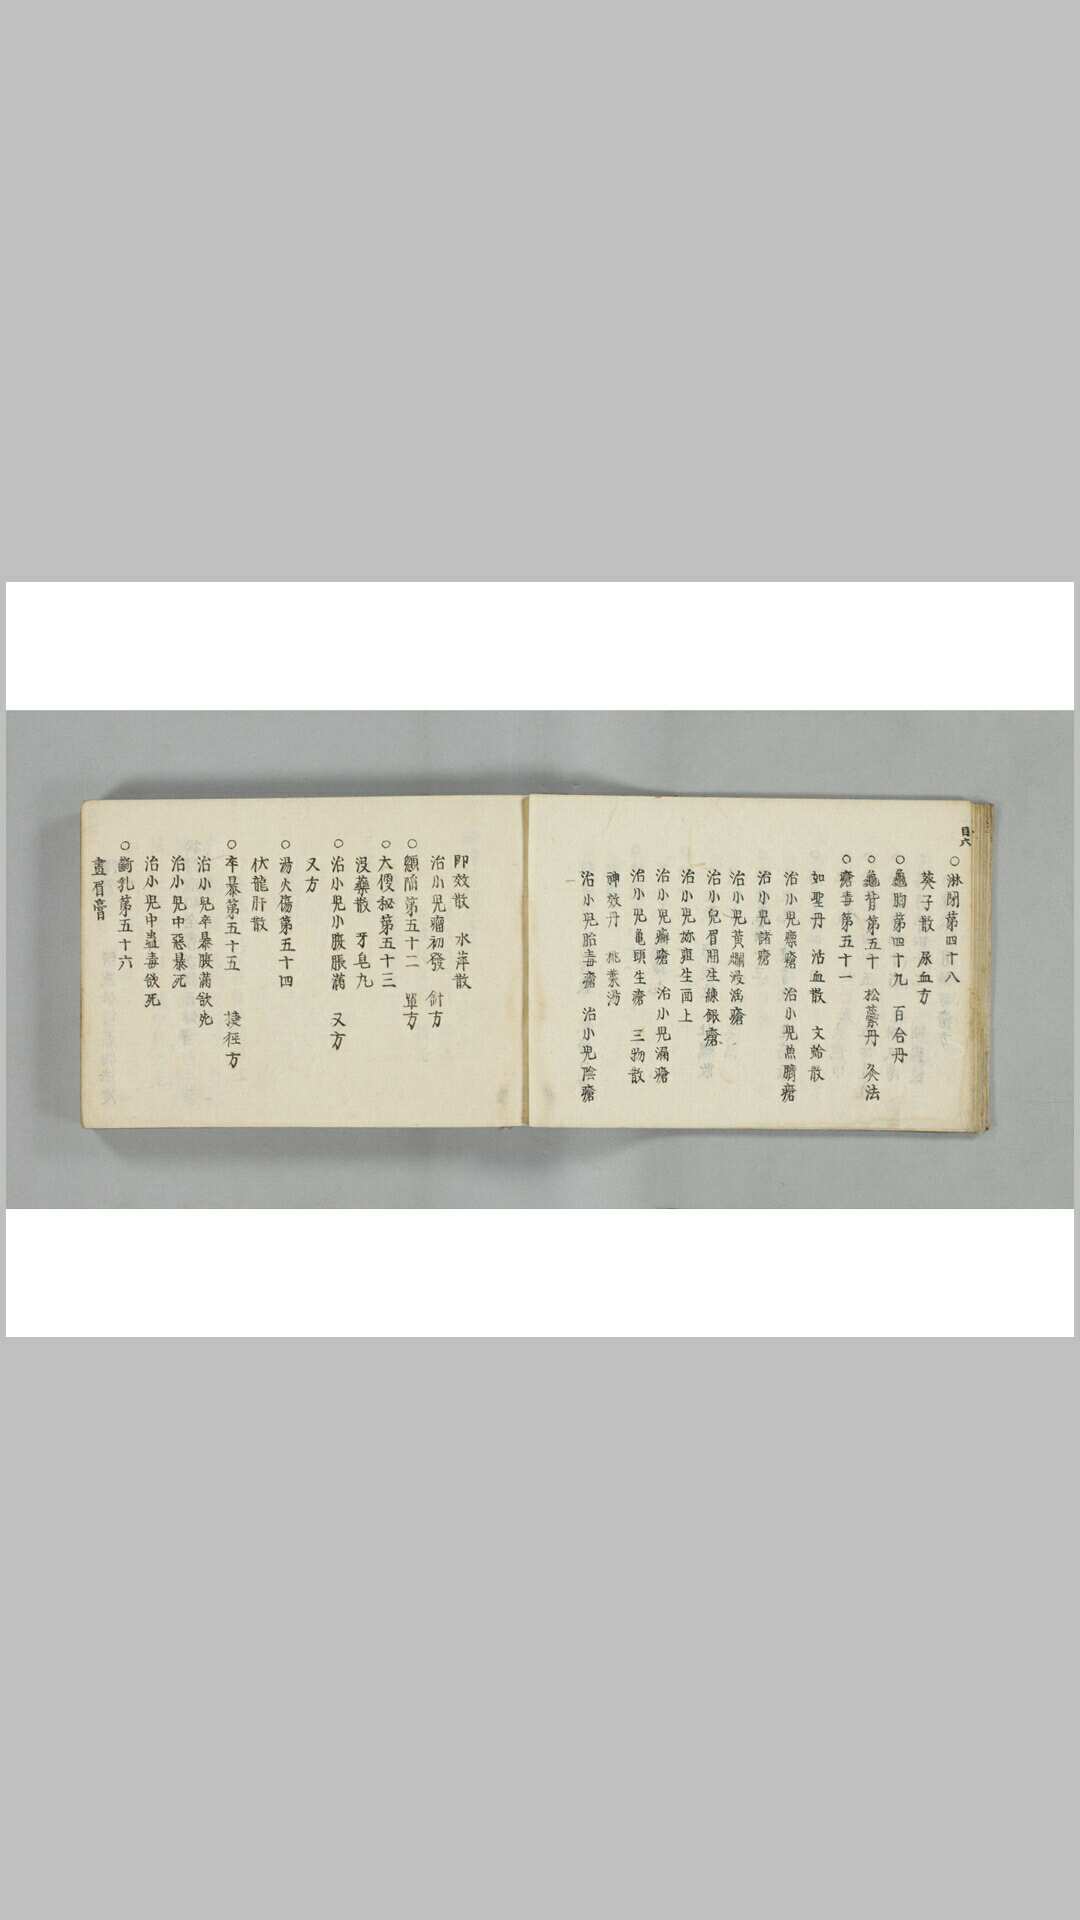 目六
○淋閉第四十八
葵子散 尿血方
○龜胸第四十九 百合丹
○龜背第五十 松蘂丹 灸法
○瘡毒第五十一
如聖丹 活血散 文蛤散
治小児瘭瘡 治小児魚臍瘡
治小児諸瘡
治小児黄爛浸滛瘡
治小兒眉間生練銀瘡
治小児妳癰生面上
治小児癬瘡 治小児漏瘡
治小児亀頭生瘡 三物散
神效丹 桃葉湯
治小児胎毒瘡 治小児陰瘡
即效散 水萍散
治小児瘤初發 針方
○顖陥第五十二 單方
○大便秘第五十三
没藥散 牙皂丸
○治小児小腹脹滿 又方
又方
○湯火傷第五十四
伏龍肝散
○卒暴第五十五 捷徑方
治小児卒暴腹滿欲死
治小児中惡暴死
治小児中蟲毒欲死
○斷乳第五十六
畫眉膏